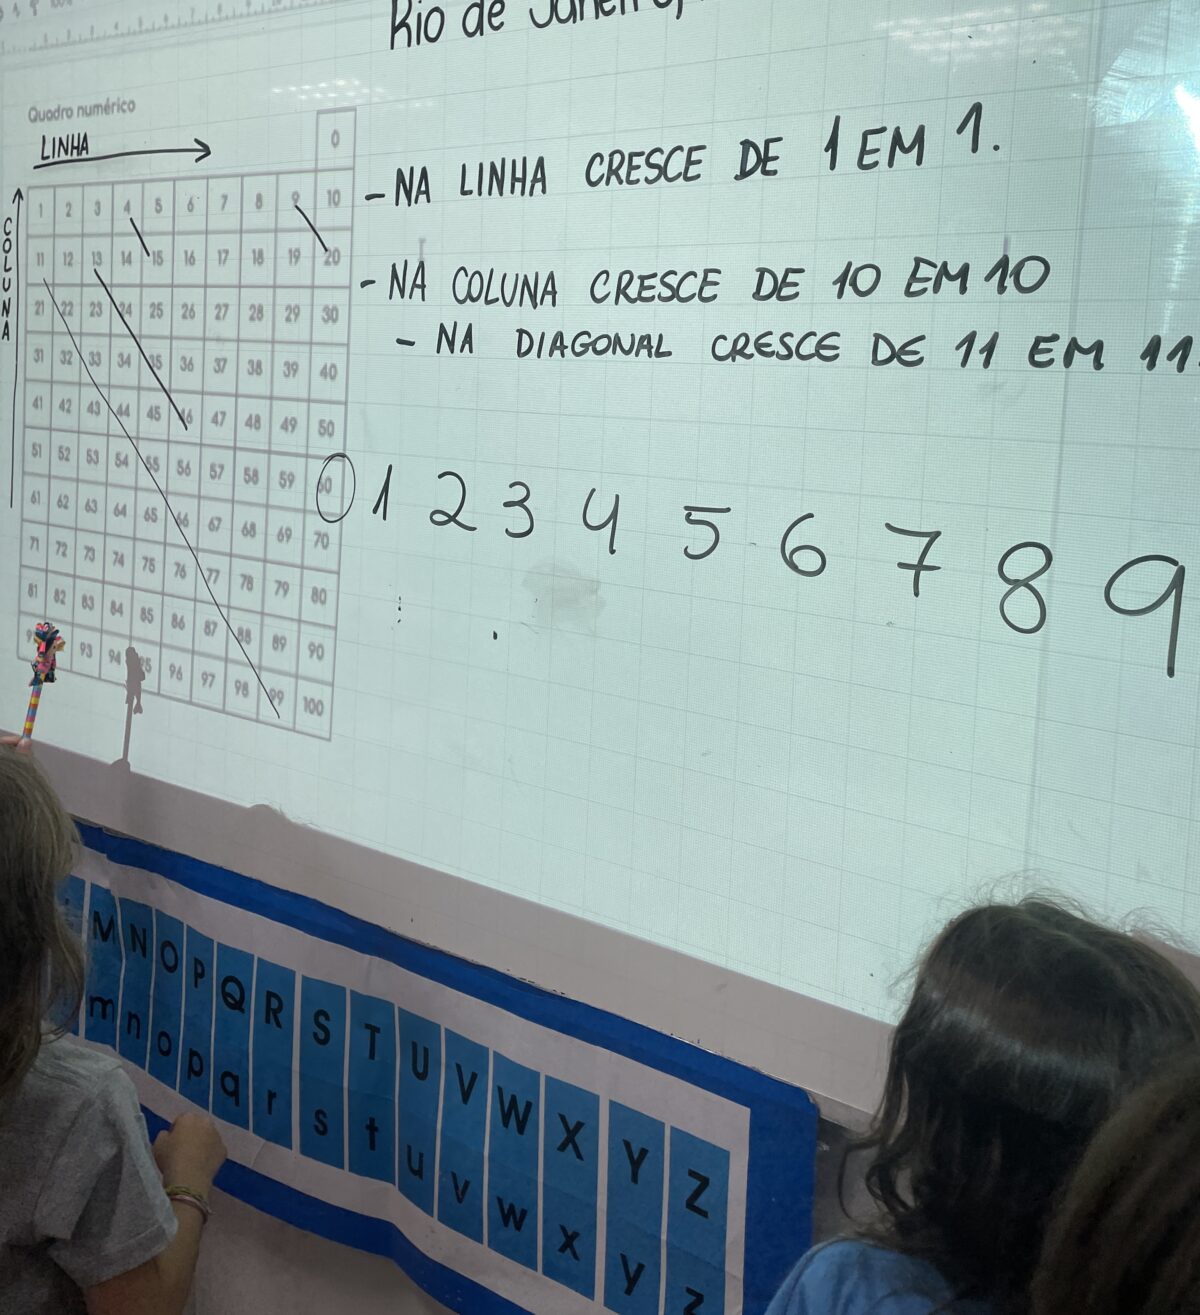 Rio de Janeiro,
Quadro numérico
LINHA
0
COLUNA
1 2 3 4 5 6 7 8 9 10
11 12 13 14 15 16 17 18 19 20
21 22 23 24 25 26 27 28 29 30
31 32 33 34 35 36 37 38 39 40
41 42 43 44 45 46 47 48 49 50
51 52 53 54 55 56 57 58 59 60
61 62 63 64 65 66 67 68 69 70
71 72 73 74 75 76 77 78 79 80
81 82 83 84 85 86 87 88 89 90
93 94 95 96 97 98 99 100
- NA LINHA CRESCE DE 1 EM 1.
- NA COLUNA CRESCE DE 10 EM 10
- NA DIAGONAL CRESCE DE 11 EM 11.
1 2 3 4 5 6 7 8 9
M N O P Q R S T U V W X Y Z
m n o p q r s t u v w x y z